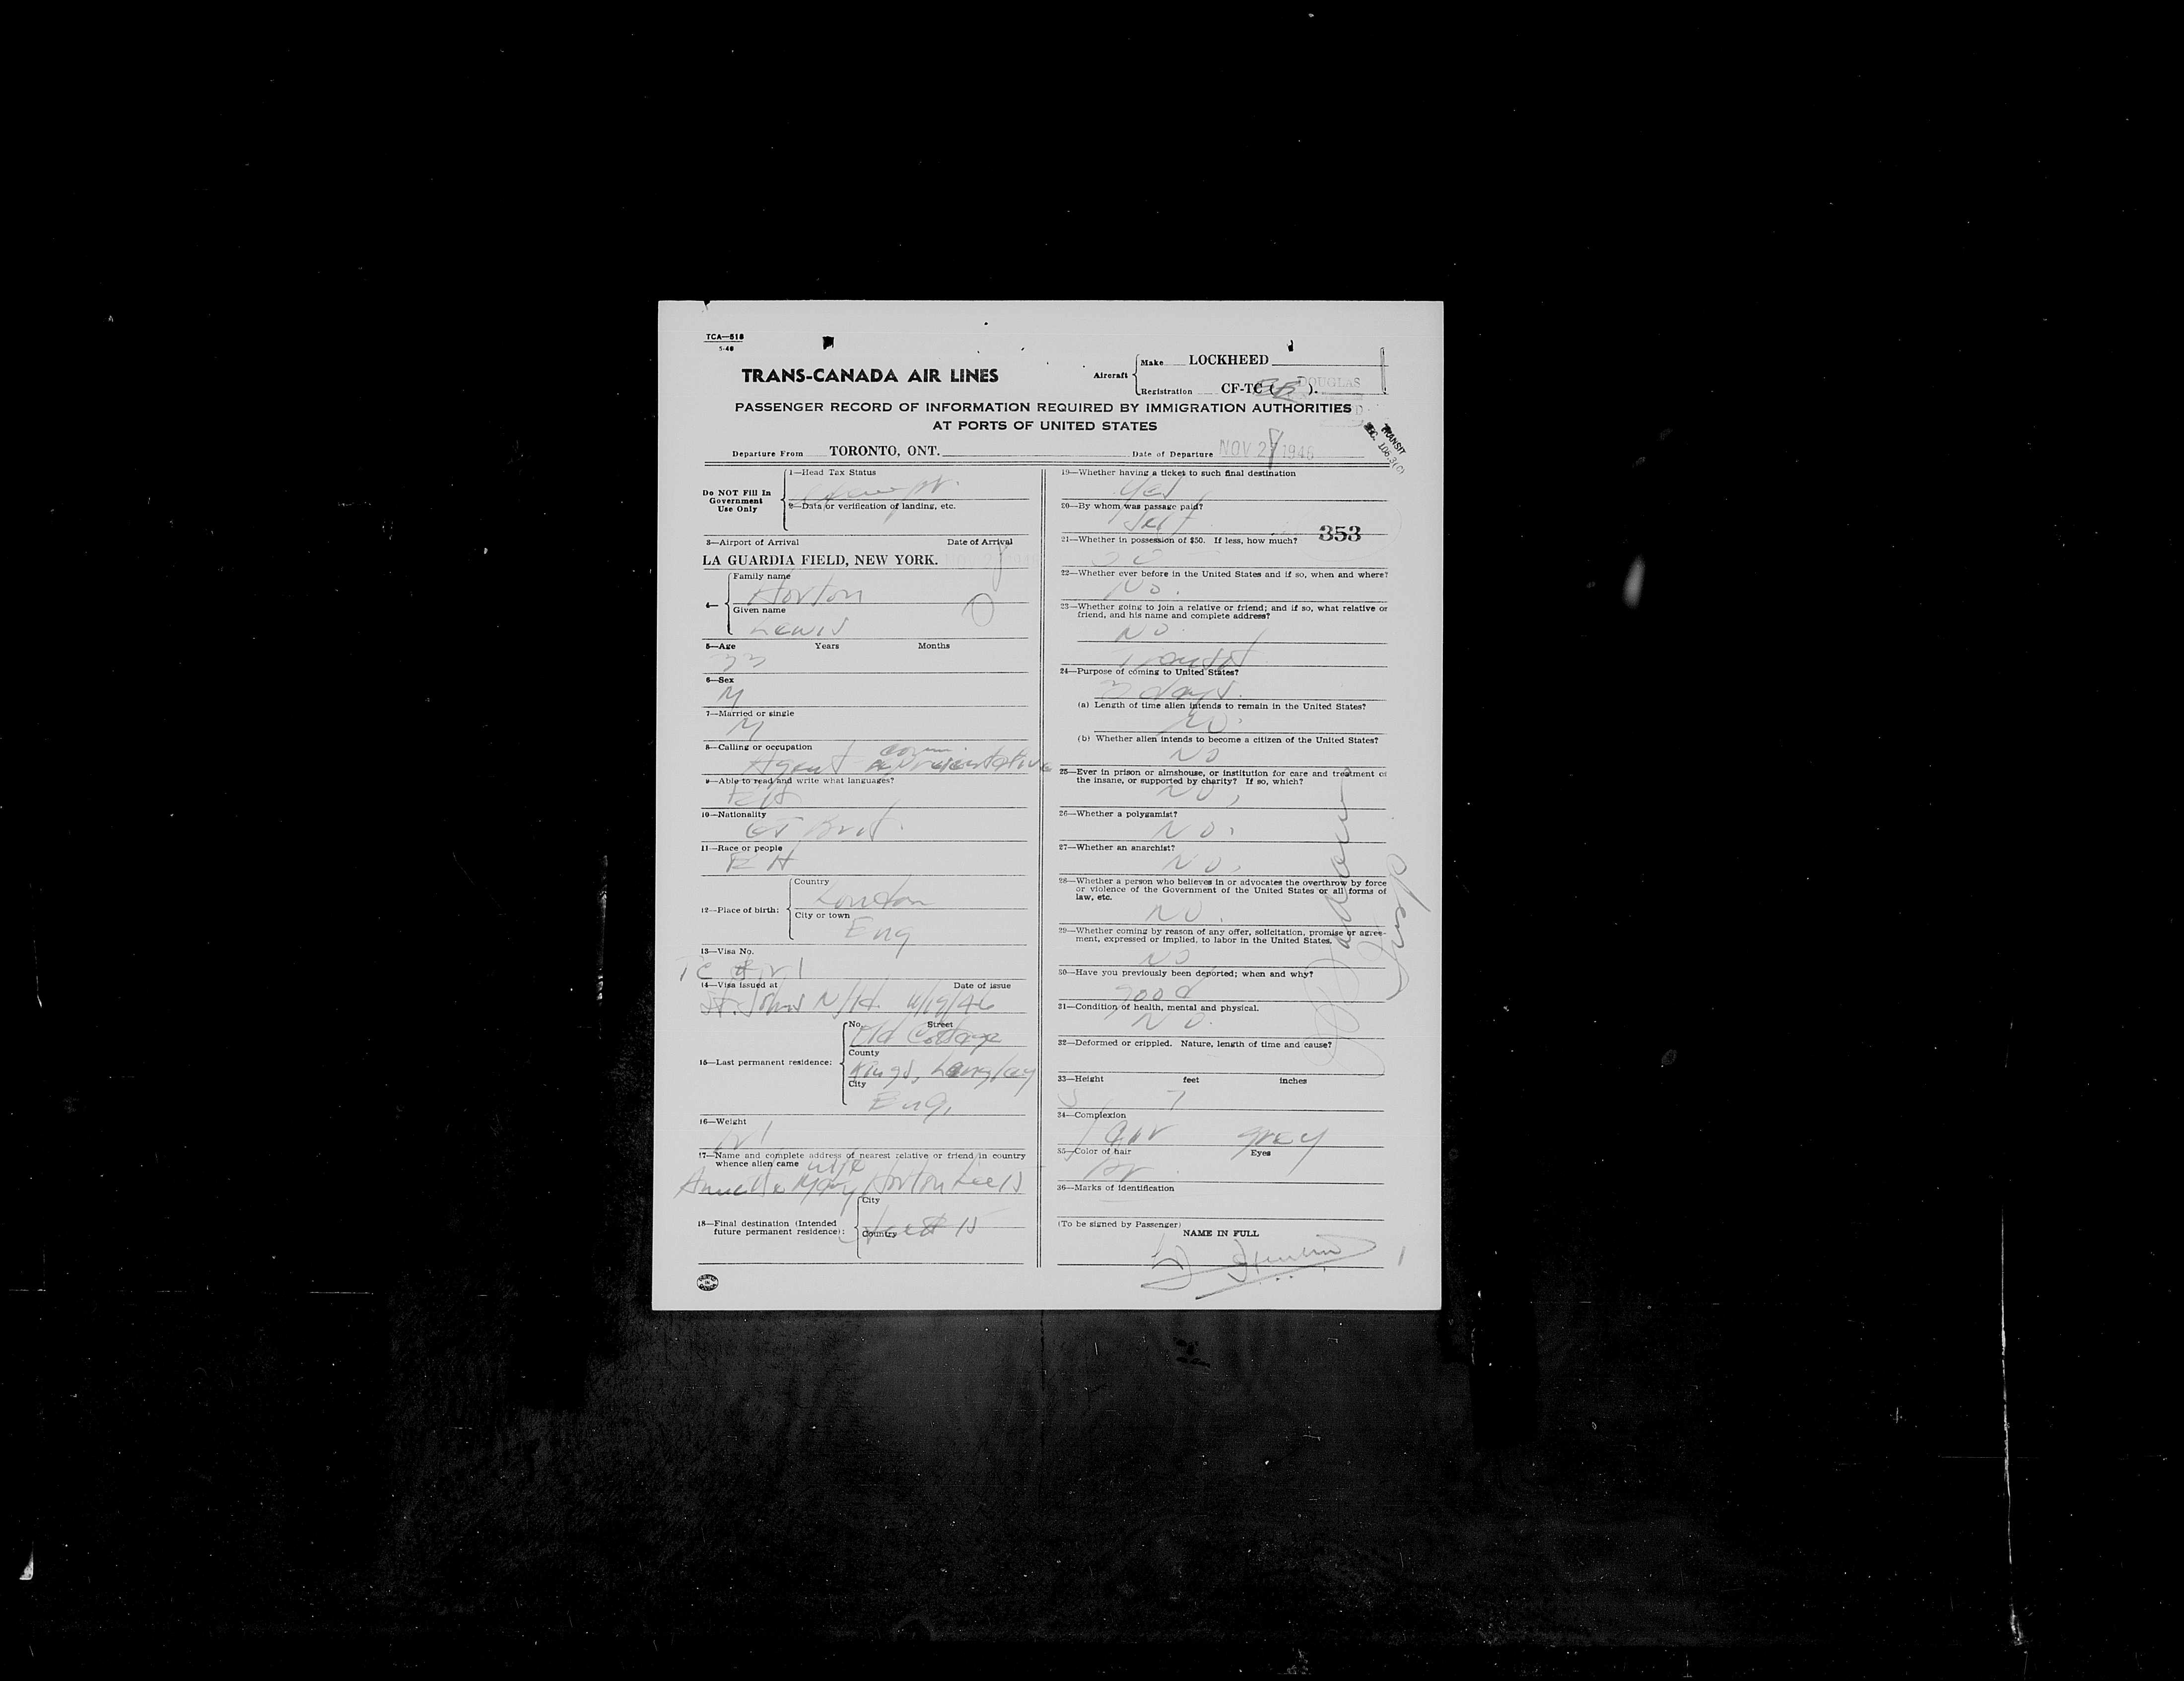 TCA—518
5-46
TRANS-CANADA AIR LINES
Aircraft
Make LOCKHEED
DOUGLAS
Registration CF-TC ( ).
PASSENGER RECORD OF INFORMATION REQUIRED BY IMMIGRATION AUTHORITIES
AT PORTS OF UNITED STATES
TRANSIT
SEC. 106.3(C)
Departure From TORONTO, ONT.
Date of Departure NOV 28 1946
Do NOT Fill In
Government
Use Only
1—Head Tax Status
2—Data or verification of landing, etc.
3—Airport of Arrival Date of Arrival
LA GUARDIA FIELD, NEW YORK.
4—
Family name
Horton
Given name
Lewis
5—Age Years Months
33
6—Sex
M
7—Married or single
M
8—Calling or occupation
Agent Comm. representative
9—Able to read and write what languages?
10—Nationality
Gt Brit.
11—Race or people
12—Place of birth:
Country
London
City or town
Eng
13—Visa No.
14—Visa issued at Date of issue
St. Johns Nfld. 11/19/46
15—Last permanent residence:
No. Street
Old Cottage
County
Kings, Langley
City
Eng.
16—Weight
17—Name and complete address of nearest relative or friend in country
whence alien came
wife
Mary Horton
18—Final destination (Intended
future permanent residence):
City
Country
19—Whether having a ticket to such final destination
Yes
20—By whom was passage paid?
Self
353
21—Whether in possession of $50. If less, how much?
22—Whether ever before in the United States and if so, when and where?
No.
23—Whether going to join a relative or friend; and if so, what relative or
friend, and his name and complete address?
NO
Transit
24—Purpose of coming to United States?
3 days.
(a) Length of time alien intends to remain in the United States?
NO.
(b) Whether alien intends to become a citizen of the United States?
NO
25—Ever in prison or almshouse, or institution for care and treatment of
the insane, or supported by charity? If so, which?
NO,
26—Whether a polygamist?
NO.
27—Whether an anarchist?
NO,
28—Whether a person who believes in or advocates the overthrow by force
or violence of the Government of the United States or all forms of
law, etc.
NO.
29—Whether coming by reason of any offer, solicitation, promise or agree-
ment, expressed or implied, to labor in the United States.
NO
30—Have you previously been deported; when and why?
good
31—Condition of health, mental and physical.
NO.
32—Deformed or crippled. Nature, length of time and cause?
33—Height feet inches
5 7
34—Complexion
fair grey
35—Color of hair Eyes
br
36—Marks of identification
(To be signed by Passenger)
NAME IN FULL